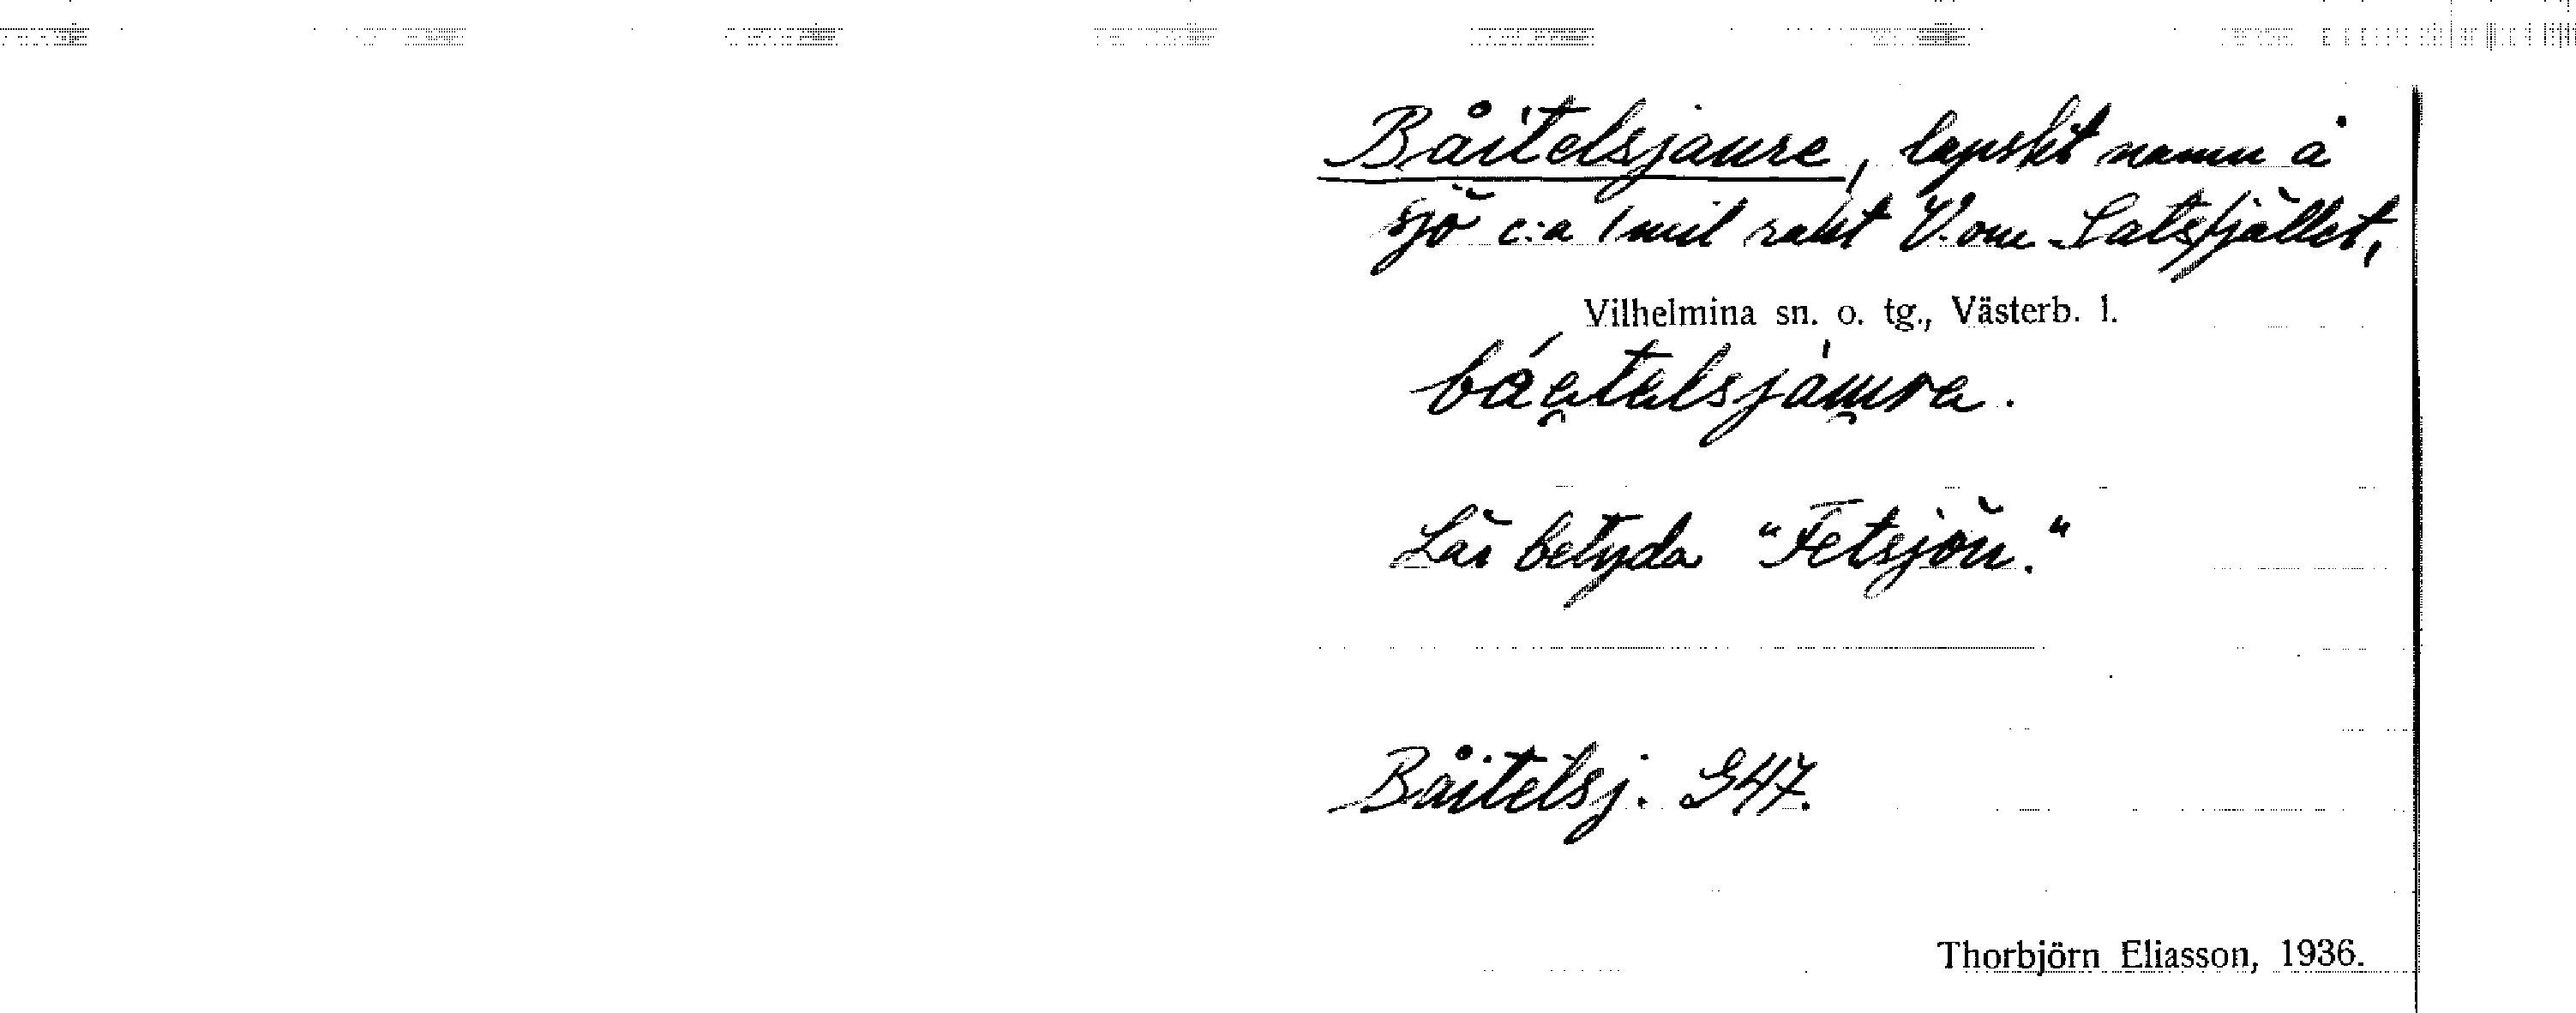 Båitelsjaure, lapskt namn å
sjö c:a 1 mil rakt V. om Satsfjället,
Vilhelmina sn. o. tg., Västerb. l.
Lär betyda "Fetsjön."
Båitelsj. G47.
Thorbjörn Eliasson, 1936.